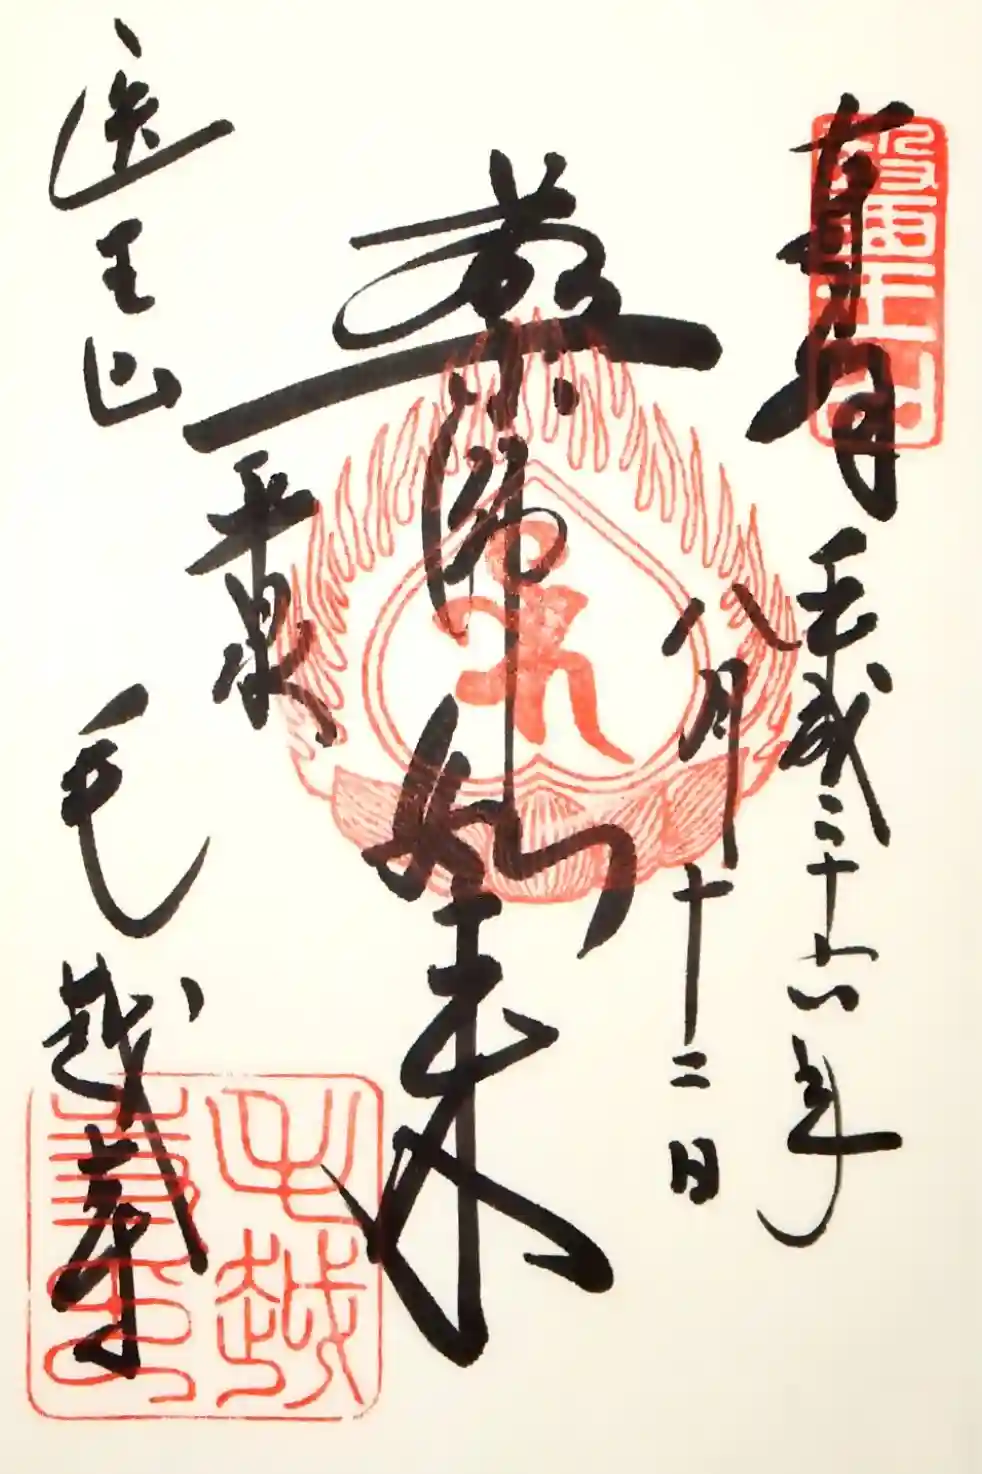 奉拝
平成二十六年
八月十二日
薬師如来
平泉
医王山
毛越寺
醫王山
毛越